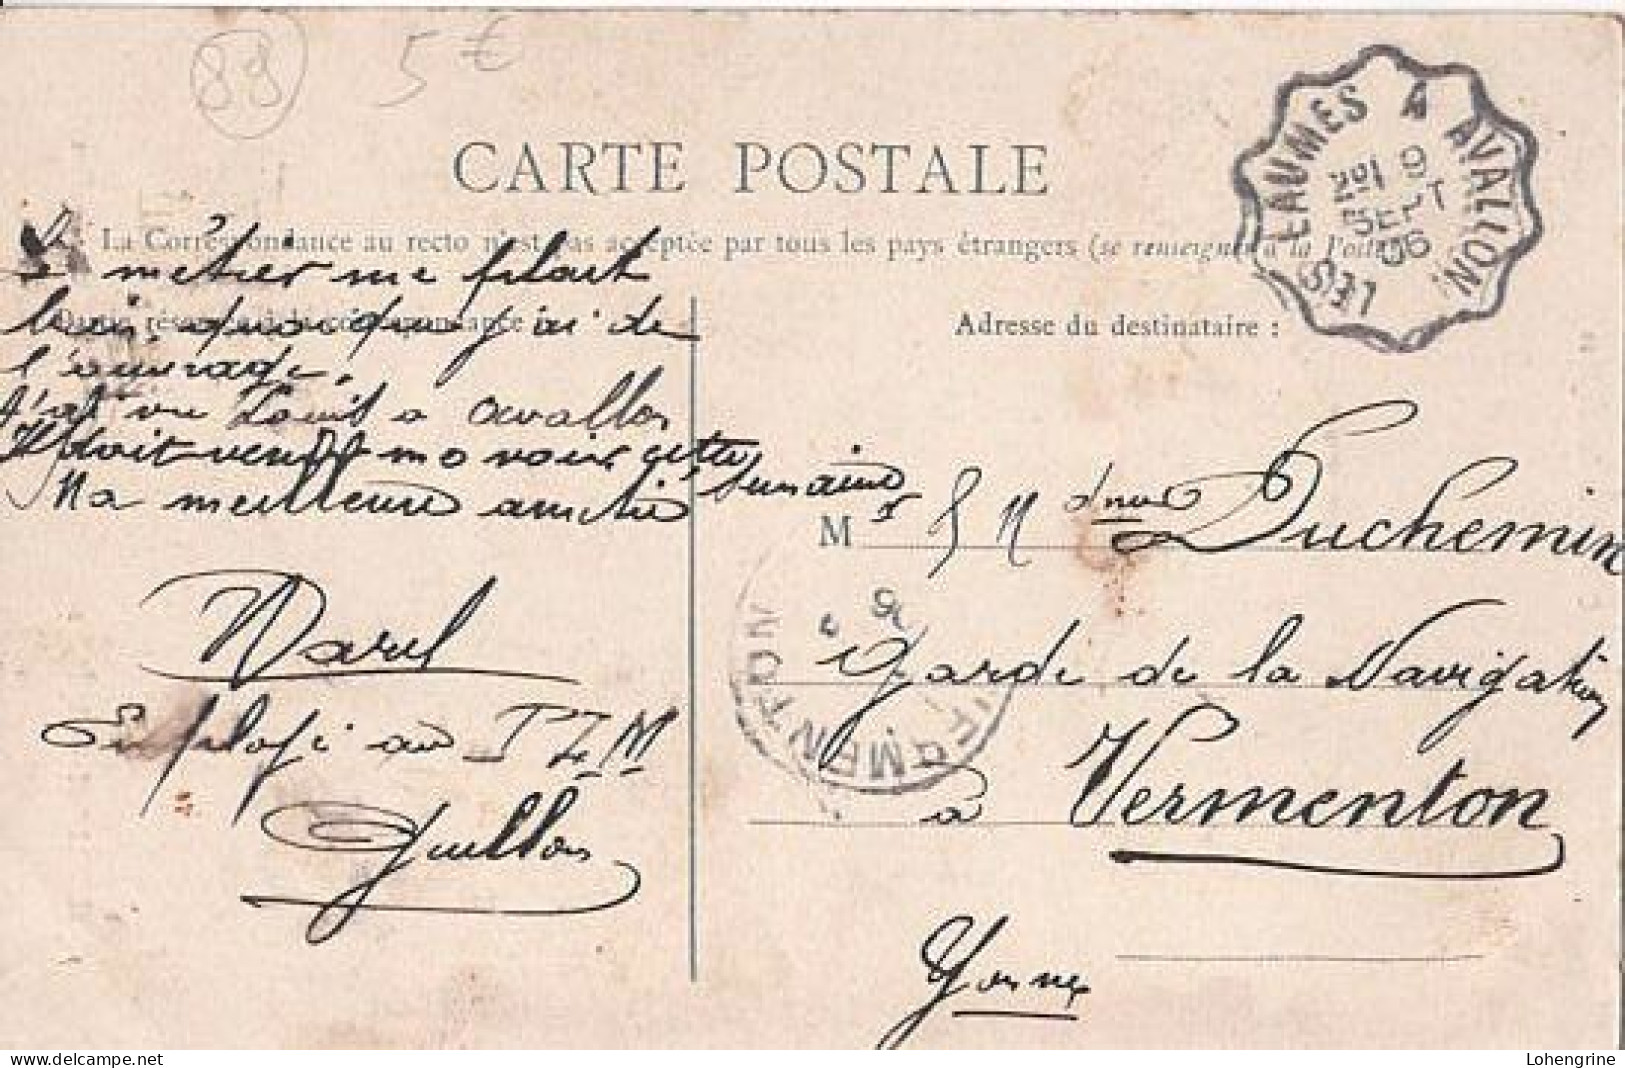 88 5 €
CARTE POSTALE
La Correspondance au recto n'est pas acceptée par tous les pays étrangers (se renseigner à la Poste)
LES LAUMES A AVALLON
2º1 9
SEPT
06
Le métier me plait
bien quoique j'ai de
l'ouvrage.
J'ai vu Louis a avallon
Il doit venir me voir cette semaine
Ma meilleure amitié
Marcel
Employé au P L M
Guillon
Adresse du destinataire :
M r & M dme Duchemin
Garde de la Navigation
à Vermenton
Yonne
VERMENTON
Lohengrine
delcampe.net